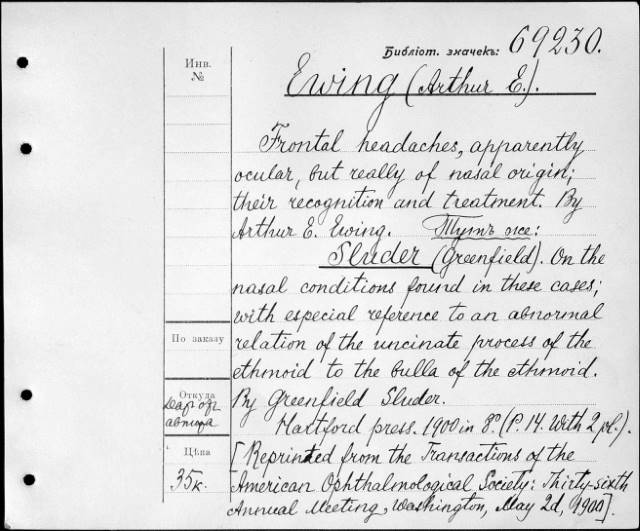 Библіот. значекъ: 69230.
Инв.
№
Ewing (Arthur E.).
Frontal headaches, apparently
ocular, but really of nasal origin;
their recognition and treatment. By
Arthur E. Ewing. Тутъ же:
Sluder (Greenfield). On the
nasal conditions found in these cases;
with especial reference to an abnormal
relation of the uncinate process of the
ethmoid to the bulla of the ethmoid.
By Greenfield Sluder.
Hartford press. 1900 in 8º. (P. 14. With 2 pl.).
[Reprinted from the Transactions of the
American Ophthalmological Society: Thirty-sixth
Annual Meeting, Washington, May 2d, 1900].
По заказу
Откуда
Даръ отъ
автора
Цѣна
35 к.